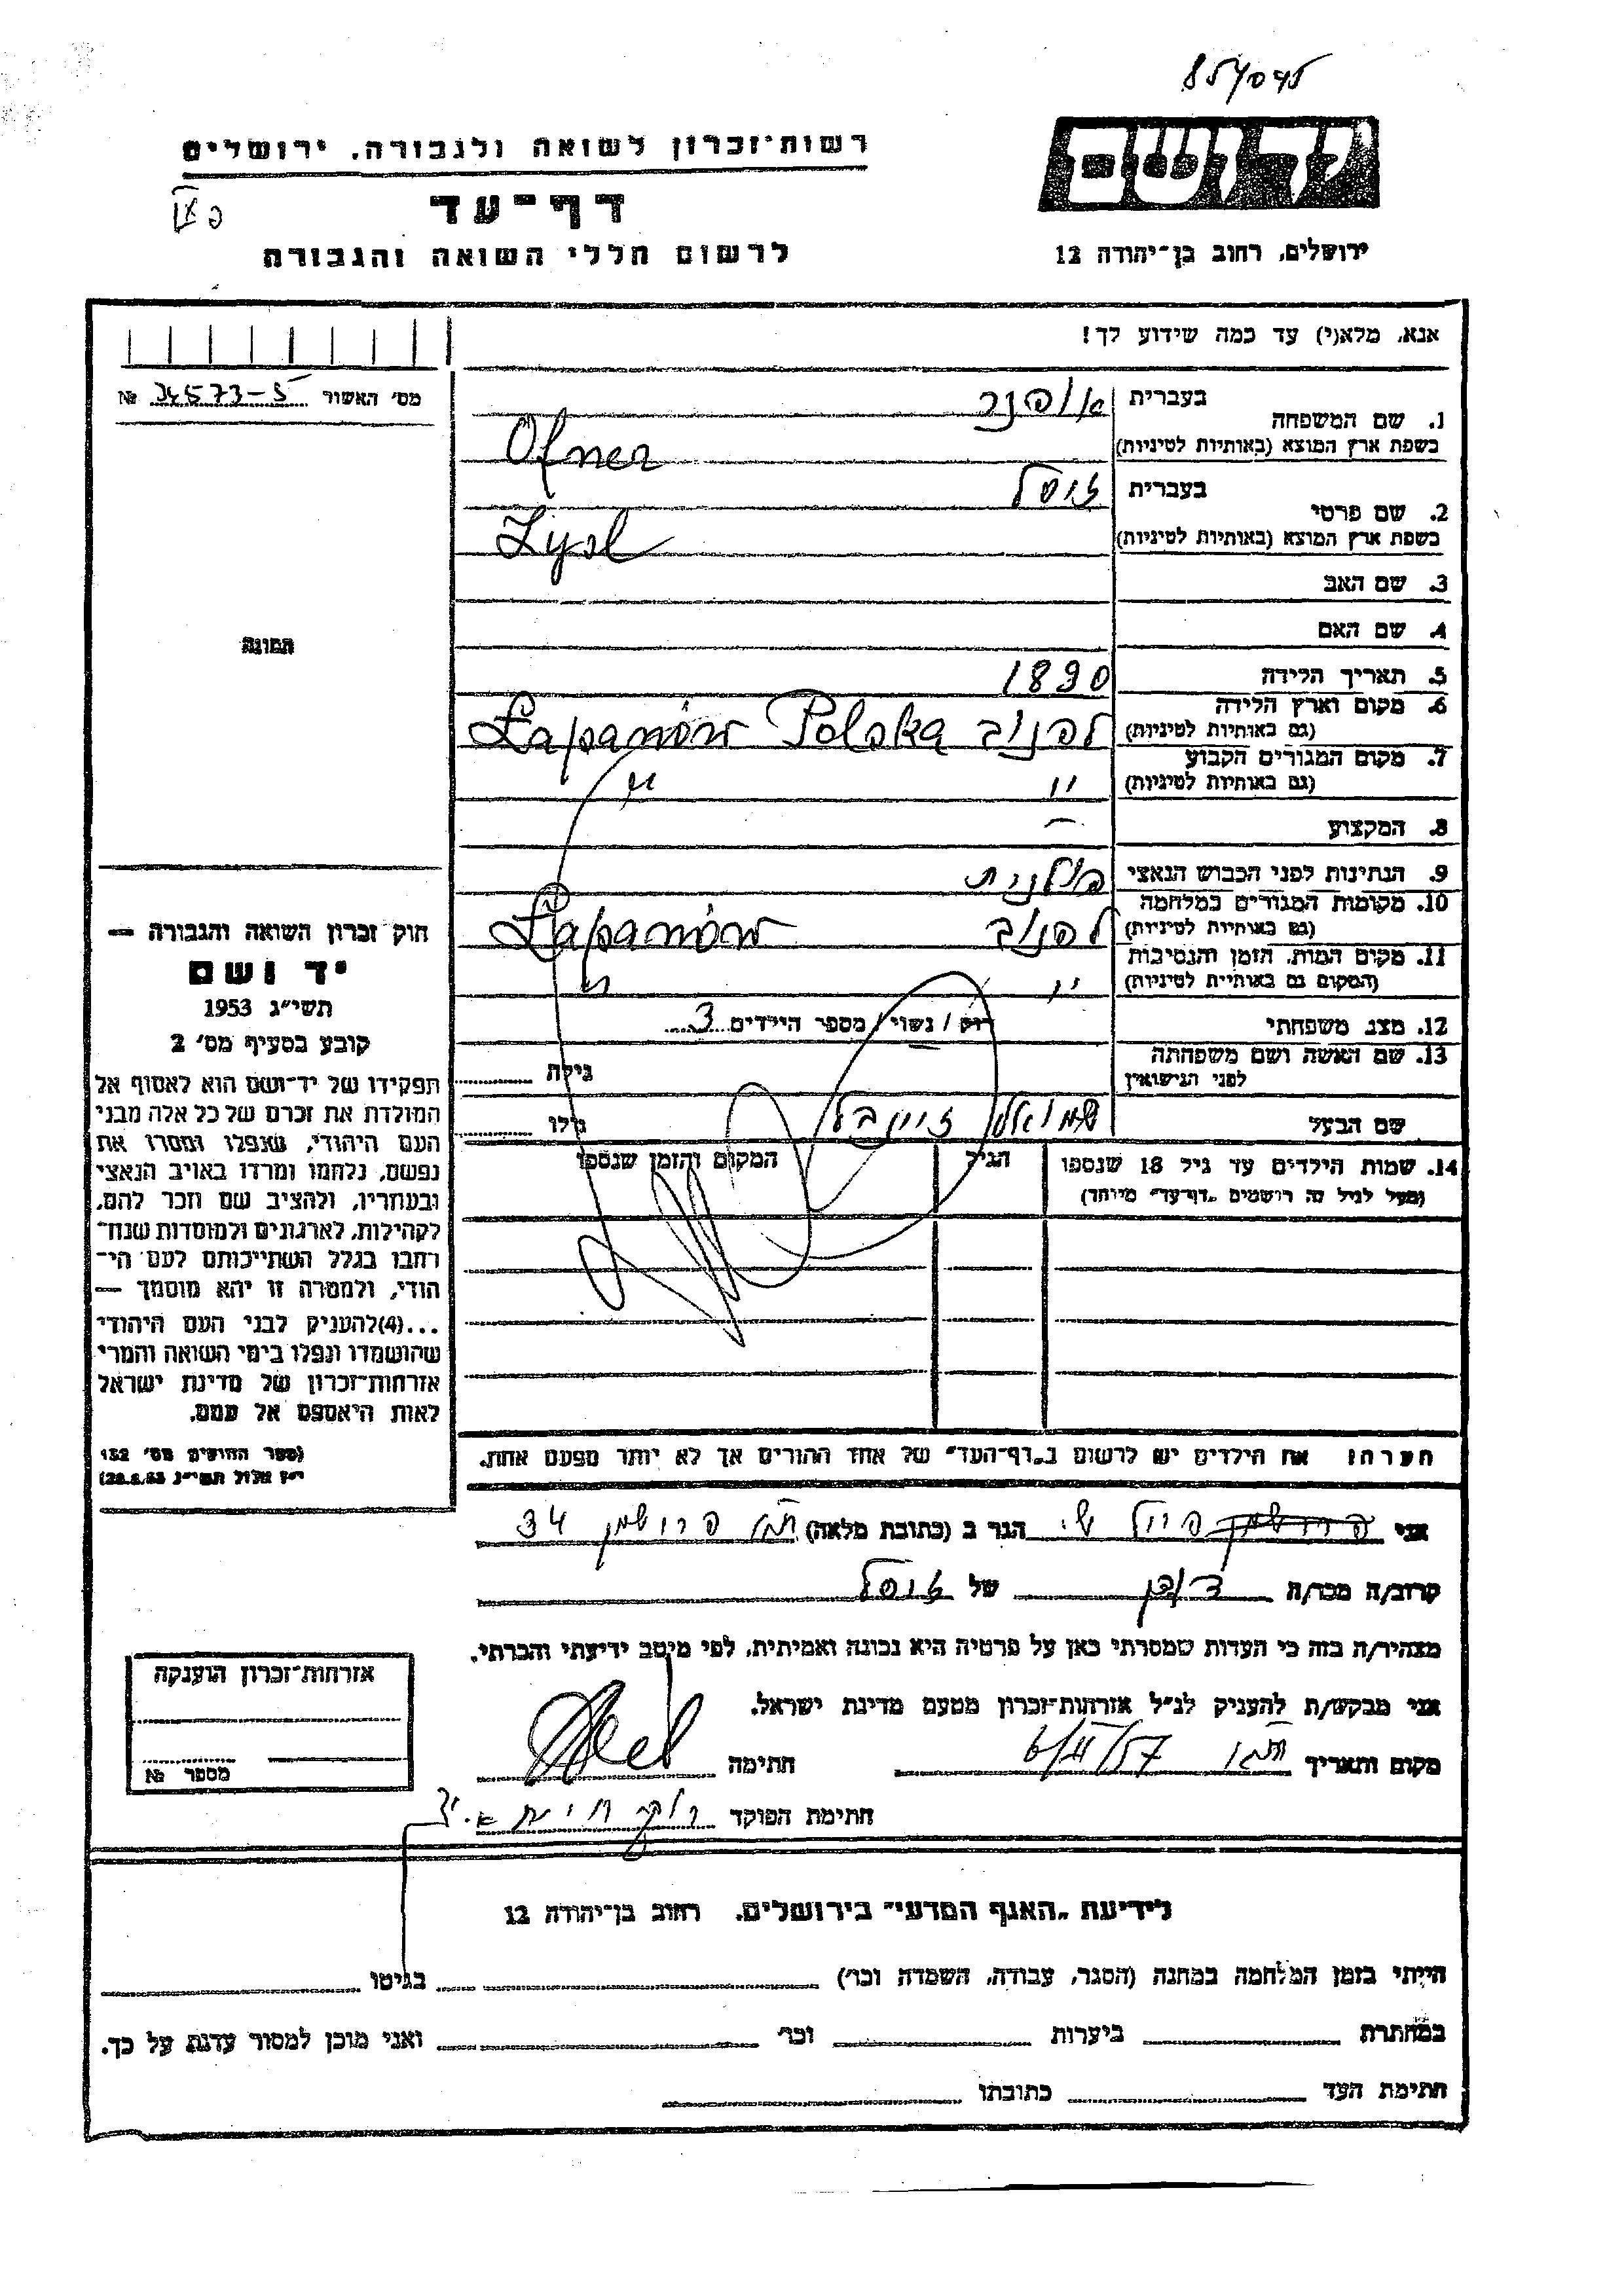 854045
רשות־זכרון לשואה ולגבורה. ירושלים
יד ושם
דף־עד
לרשום חללי השואה והגבורה
ירושלים, רחוב בן־יהודה 12
אנא, מלא(י) עד כמה שידוע לך!
מס׳ האשור 34573-5 №
1. שם המשפחה
בעברית אופנר
בשפת ארץ המוצא (באותיות לטיניות) Ofner
2. שם פרטי
בעברית זיסל
בשפת ארץ המוצא (באותיות לטיניות) Zysl
3. שם האב
4. שם האם
תמונה
5. תאריך הלידה 1890
6. מקום וארץ הלידה
(גם באותיות לטיניות) לפנוב Łapanów Polska
7. מקום המגורים הקבוע
(גם באותיות לטיניות) ״ ״
8. המקצוע —
9. הנתינות לפני הכבוש הנאצי פולנית
10. מקומות המגורים במלחמה
(גם באותיות לטיניות) לפנוב Łapanów
11. מקום המות, הזמן והנסיבות
(המקום גם באותיות לטיניות) ״ ״
12. מצב משפחתי רוק / נשוי / מספר הילדים 3
13. שם האשה ושם משפחתה
לפני הנישואין גילה
שם הבעל שמואל גילו
14. שמות הילדים עד גיל 18 שנספו הגיל המקום והזמן שנספו
(מעל לגיל זה רושמים „דף־עד״ מיוחד)
חוק זכרון השואה והגבורה —
יד ושם
תשי״ג 1953
קובע בסעיף מס׳ 2
תפקידו של יד־ושם הוא לאסוף אל
המולדת את זכרם של כל אלה מבני
העם היהודי, שנפלו ומסרו את
נפשם, נלחמו ומרדו באויב הנאצי
ובעוזריו, ולהציב שם וזכר להם,
לקהילות, לארגונים ולמוסדות שנח־
רבו בגלל השתייכותם לעם הי־
הודי, ולמטרה זו יהא מוסמך —
...(4)להעניק לבני העם היהודי
שהושמדו ונפלו בימי השואה והמרי
אזרחות־זכרון של מדינת ישראל
לאות היאספם אל עמם.
(ספר החוקים מס׳ 132
י״ז אלול תשי״ג 28.8.53)
הערה: את הילדים יש לרשום ב„דף־העד״ של אחד ההורים אך לא יותר מפעם אחת.
אני הגר ב (כתובת מלאה) 34
קרוב/ה מכר/ה של זיסל
מצהיר/ה בזה כי העדות שמסרתי כאן על פרטיה היא נכונה ואמיתית, לפי מיטב ידיעתי והכרתי.
אני מבקש/ת להעניק לנ״ל אזרחות־זכרון מטעם מדינת ישראל.
מקום ותאריך חתימה
חתימת הפוקד
אזרחות־זכרון הוענקה
מספר №
לידיעת „האגף המדעי״ בירושלים. רחוב בן־יהודה 12
הייתי בזמן המלחמה במחנה (הסגר, עבודה, השמדה וכו׳) בגיטו
במחתרת ביערות וכו׳ ואני מוכן למסור עדות על כך.
חתימת העד כתובתו